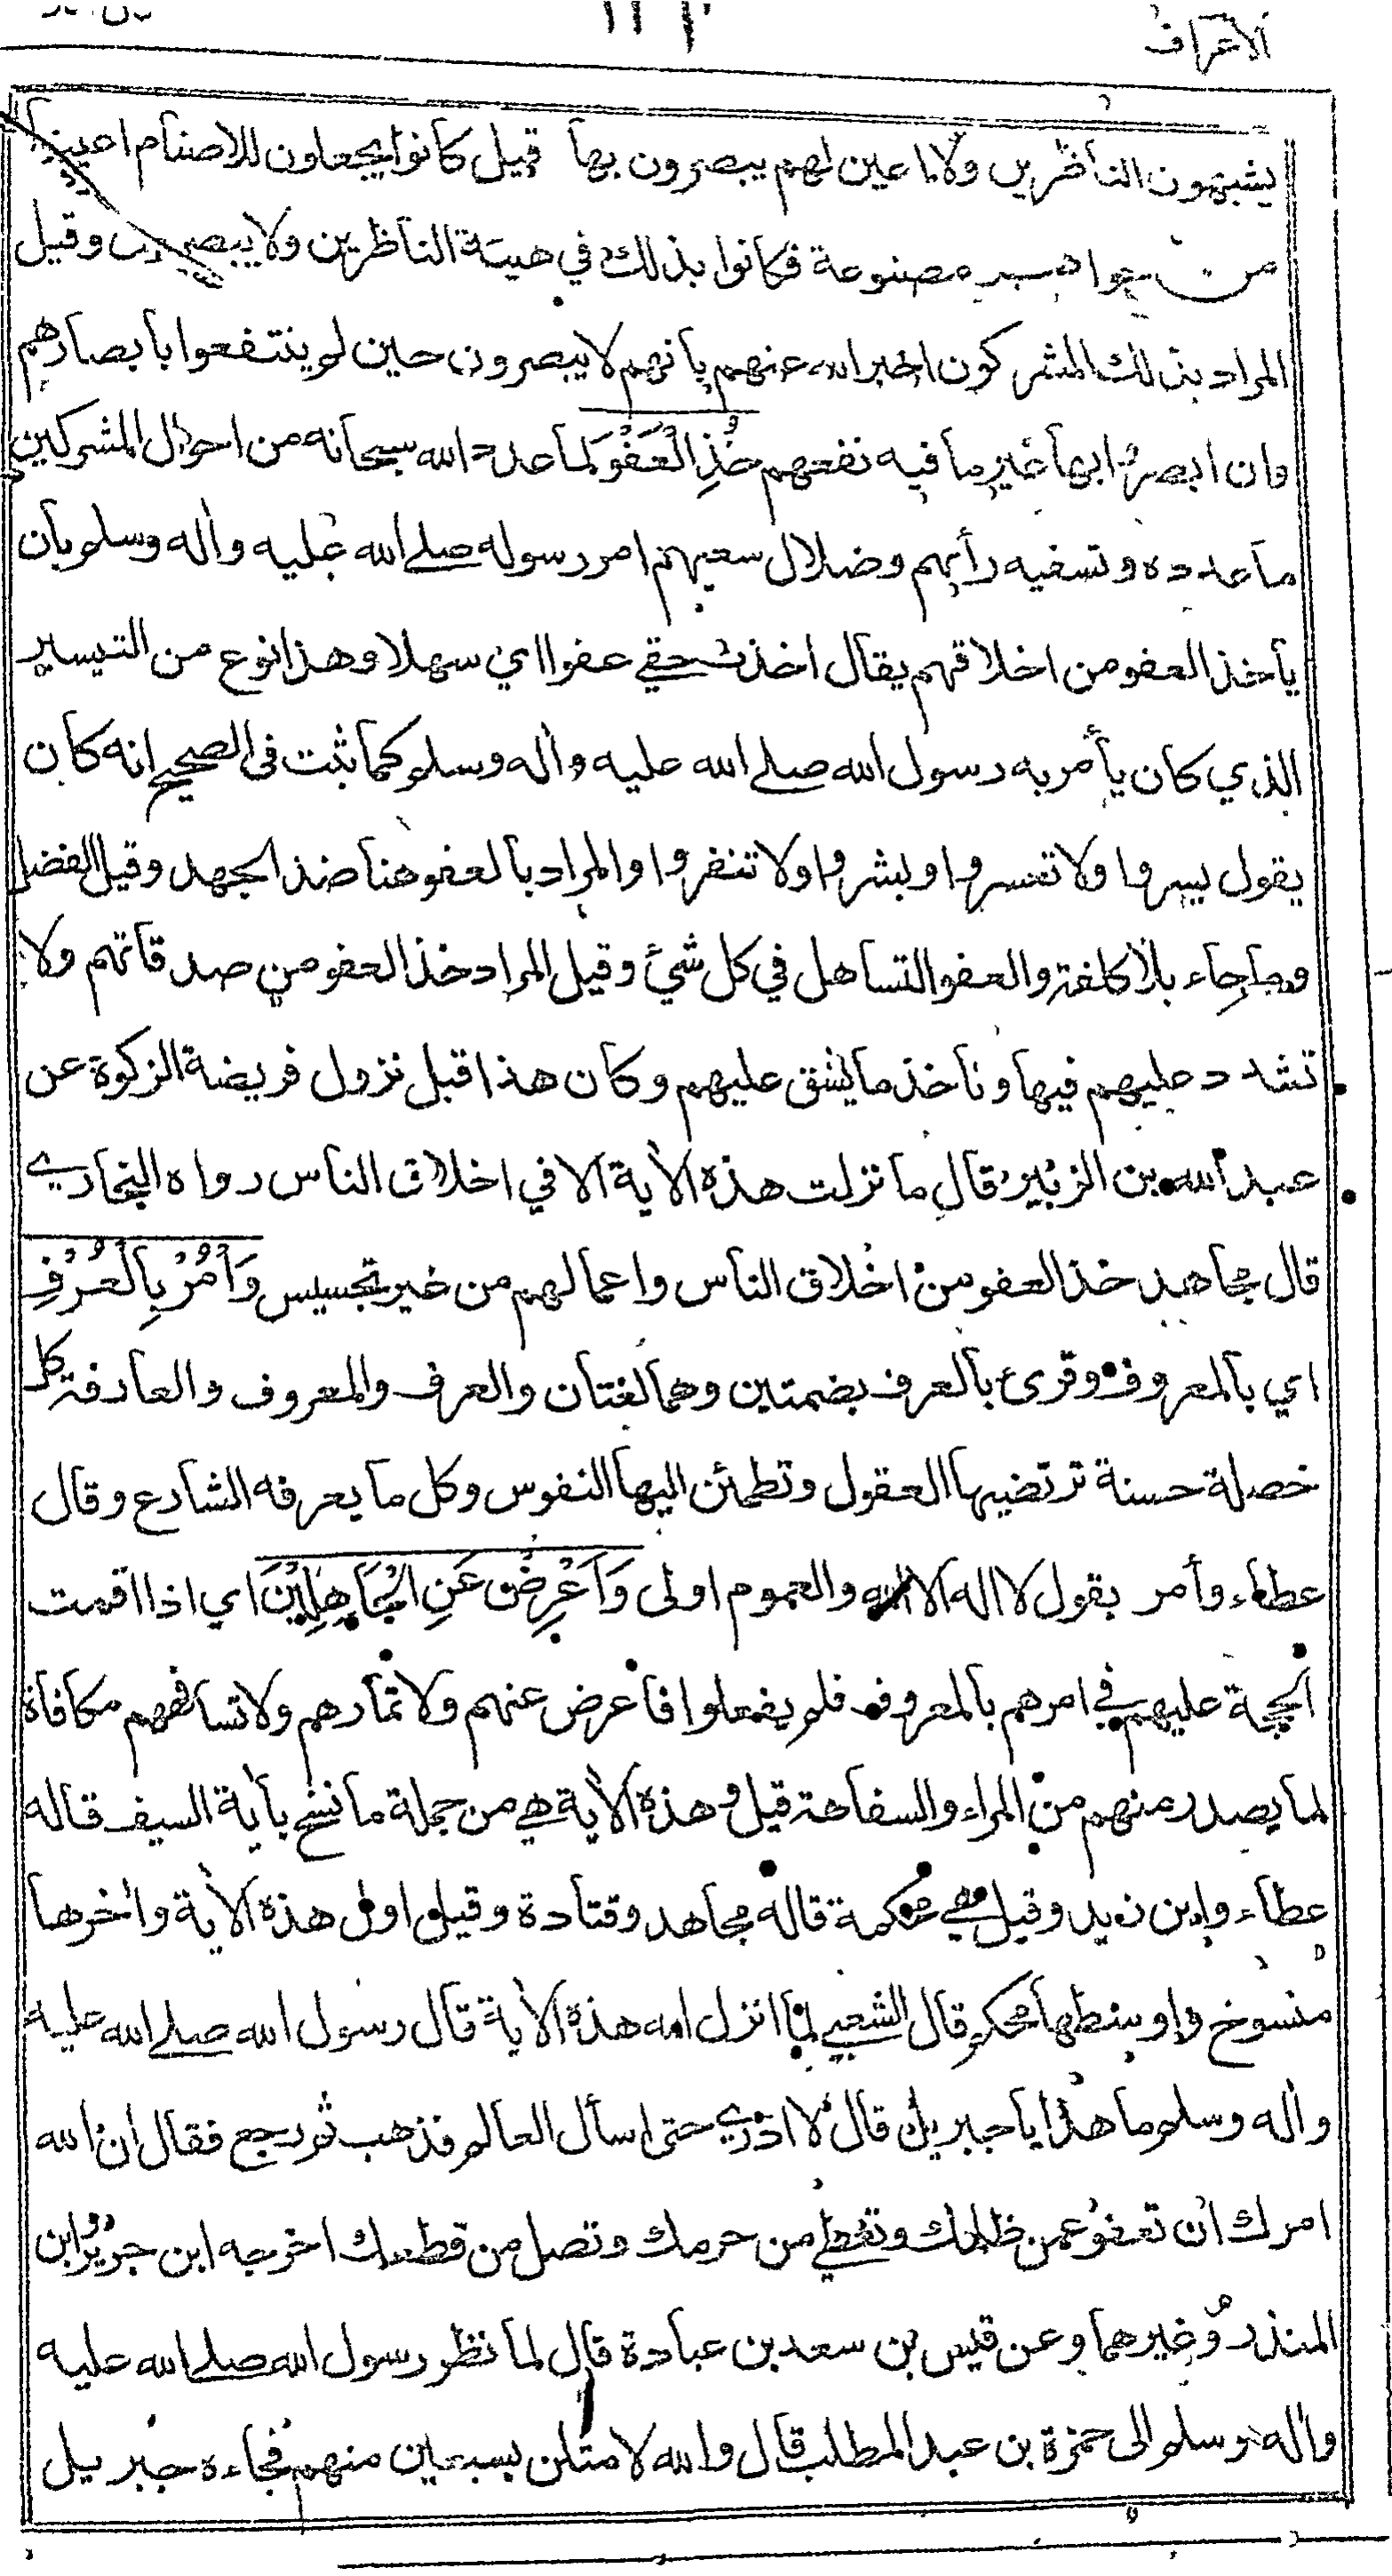 الاعراف
يشبهون الناظرين ولا اعين لهم يبصرون بها قيل كانوا يجعلون للاصنام اعينا
من جواهر مصنوعة فكانوا بذلك في هيئة الناظرين ولا يبصرون وقيل
المراد بذلك المشركون اخبر الله عنهم بانهم لا يبصرون حين لم ينتفعوا بابصارهم
وان ابصروا بها غير ما فيه نفعهم خُذِ الْعَفْوَ لما عدد الله سبحانه من احوال المشركين
ما عدده وتسفيه رأيهم وضلال سعيهم امر رسوله صلى الله عليه واٰله وسلم بان
يأخذ العفو من اخلاقهم يقال اخذت حقي عفوا اي سهلا وهذا نوع من التيسير
الذي كان يأمر به رسول الله صلى الله عليه واٰله وسلم كما ثبت في الصحيح انه كان
يقول يسروا ولا تعسروا وبشروا ولا تنفروا والمراد بالعفو هنا ضد الجهد وقيل الفضل
وما جاء بلا كلفة والعفو التساهل في كل شيئ وقيل المراد خذ العفو من صدقاتهم ولا
تشدد عليهم فيها وتأخذ ما يشق عليهم وكان هذا قبل نزول فريضة الزكوة عن
عبد الله بن الزبير قال ما نزلت هذه الاٰية الا في اخلاق الناس رواه البخاري
قال مجاهد خذ العفو من اخلاق الناس واعمالهم من غير تجسيس وَأْمُرْ بِالْعُرْفِ
اي بالمعروف وقرئ بالعرف بضمتين وهما لغتان والعرف والمعروف والعارفة كل
خصلة حسنة ترتضيها العقول وتطمئن اليها النفوس وكل ما يعرفه الشارع وقال
عطاء وأمر بقول لا اله الا الله والعموم اولى وَاَعْرِضْ عَنِ الْجَاهِلِيْنَ اي اذا اقمت
الحجة عليهم في امرهم بالمعروف فلم يفعلوا فاعرض عنهم ولا تمارهم ولا تسافههم مكافاة
لما يصدر منهم من المراء والسفاهة قيل وهذه الاٰية هي من جملة ما نسخ باٰية السيف قاله
عطاء وابن زيد وقيل هي محكمة قاله مجاهد وقتادة وقيل اول هذه الاٰية واٰخرها
منسوخ واوسطها محكم قال الشعبي لما انزل الله هذه الاٰية قال رسول الله صلى الله عليه
واٰله وسلم ما هذا يا جبريل قال لا ادري حتى اسأل العالم فذهب ثم رجع فقال ان الله
امرك ان تعفو عمن ظلمك وتعطي من حرمك وتصل من قطعك اخرجه ابن جرير وابن
المنذر وغيرهما وعن قيس بن سعد بن عبادة قال لما نظر رسول الله صلى الله عليه
واٰله وسلم الى حمزة بن عبد المطلب قال والله لامثلن بسبعين منهم فجاءه جبريل